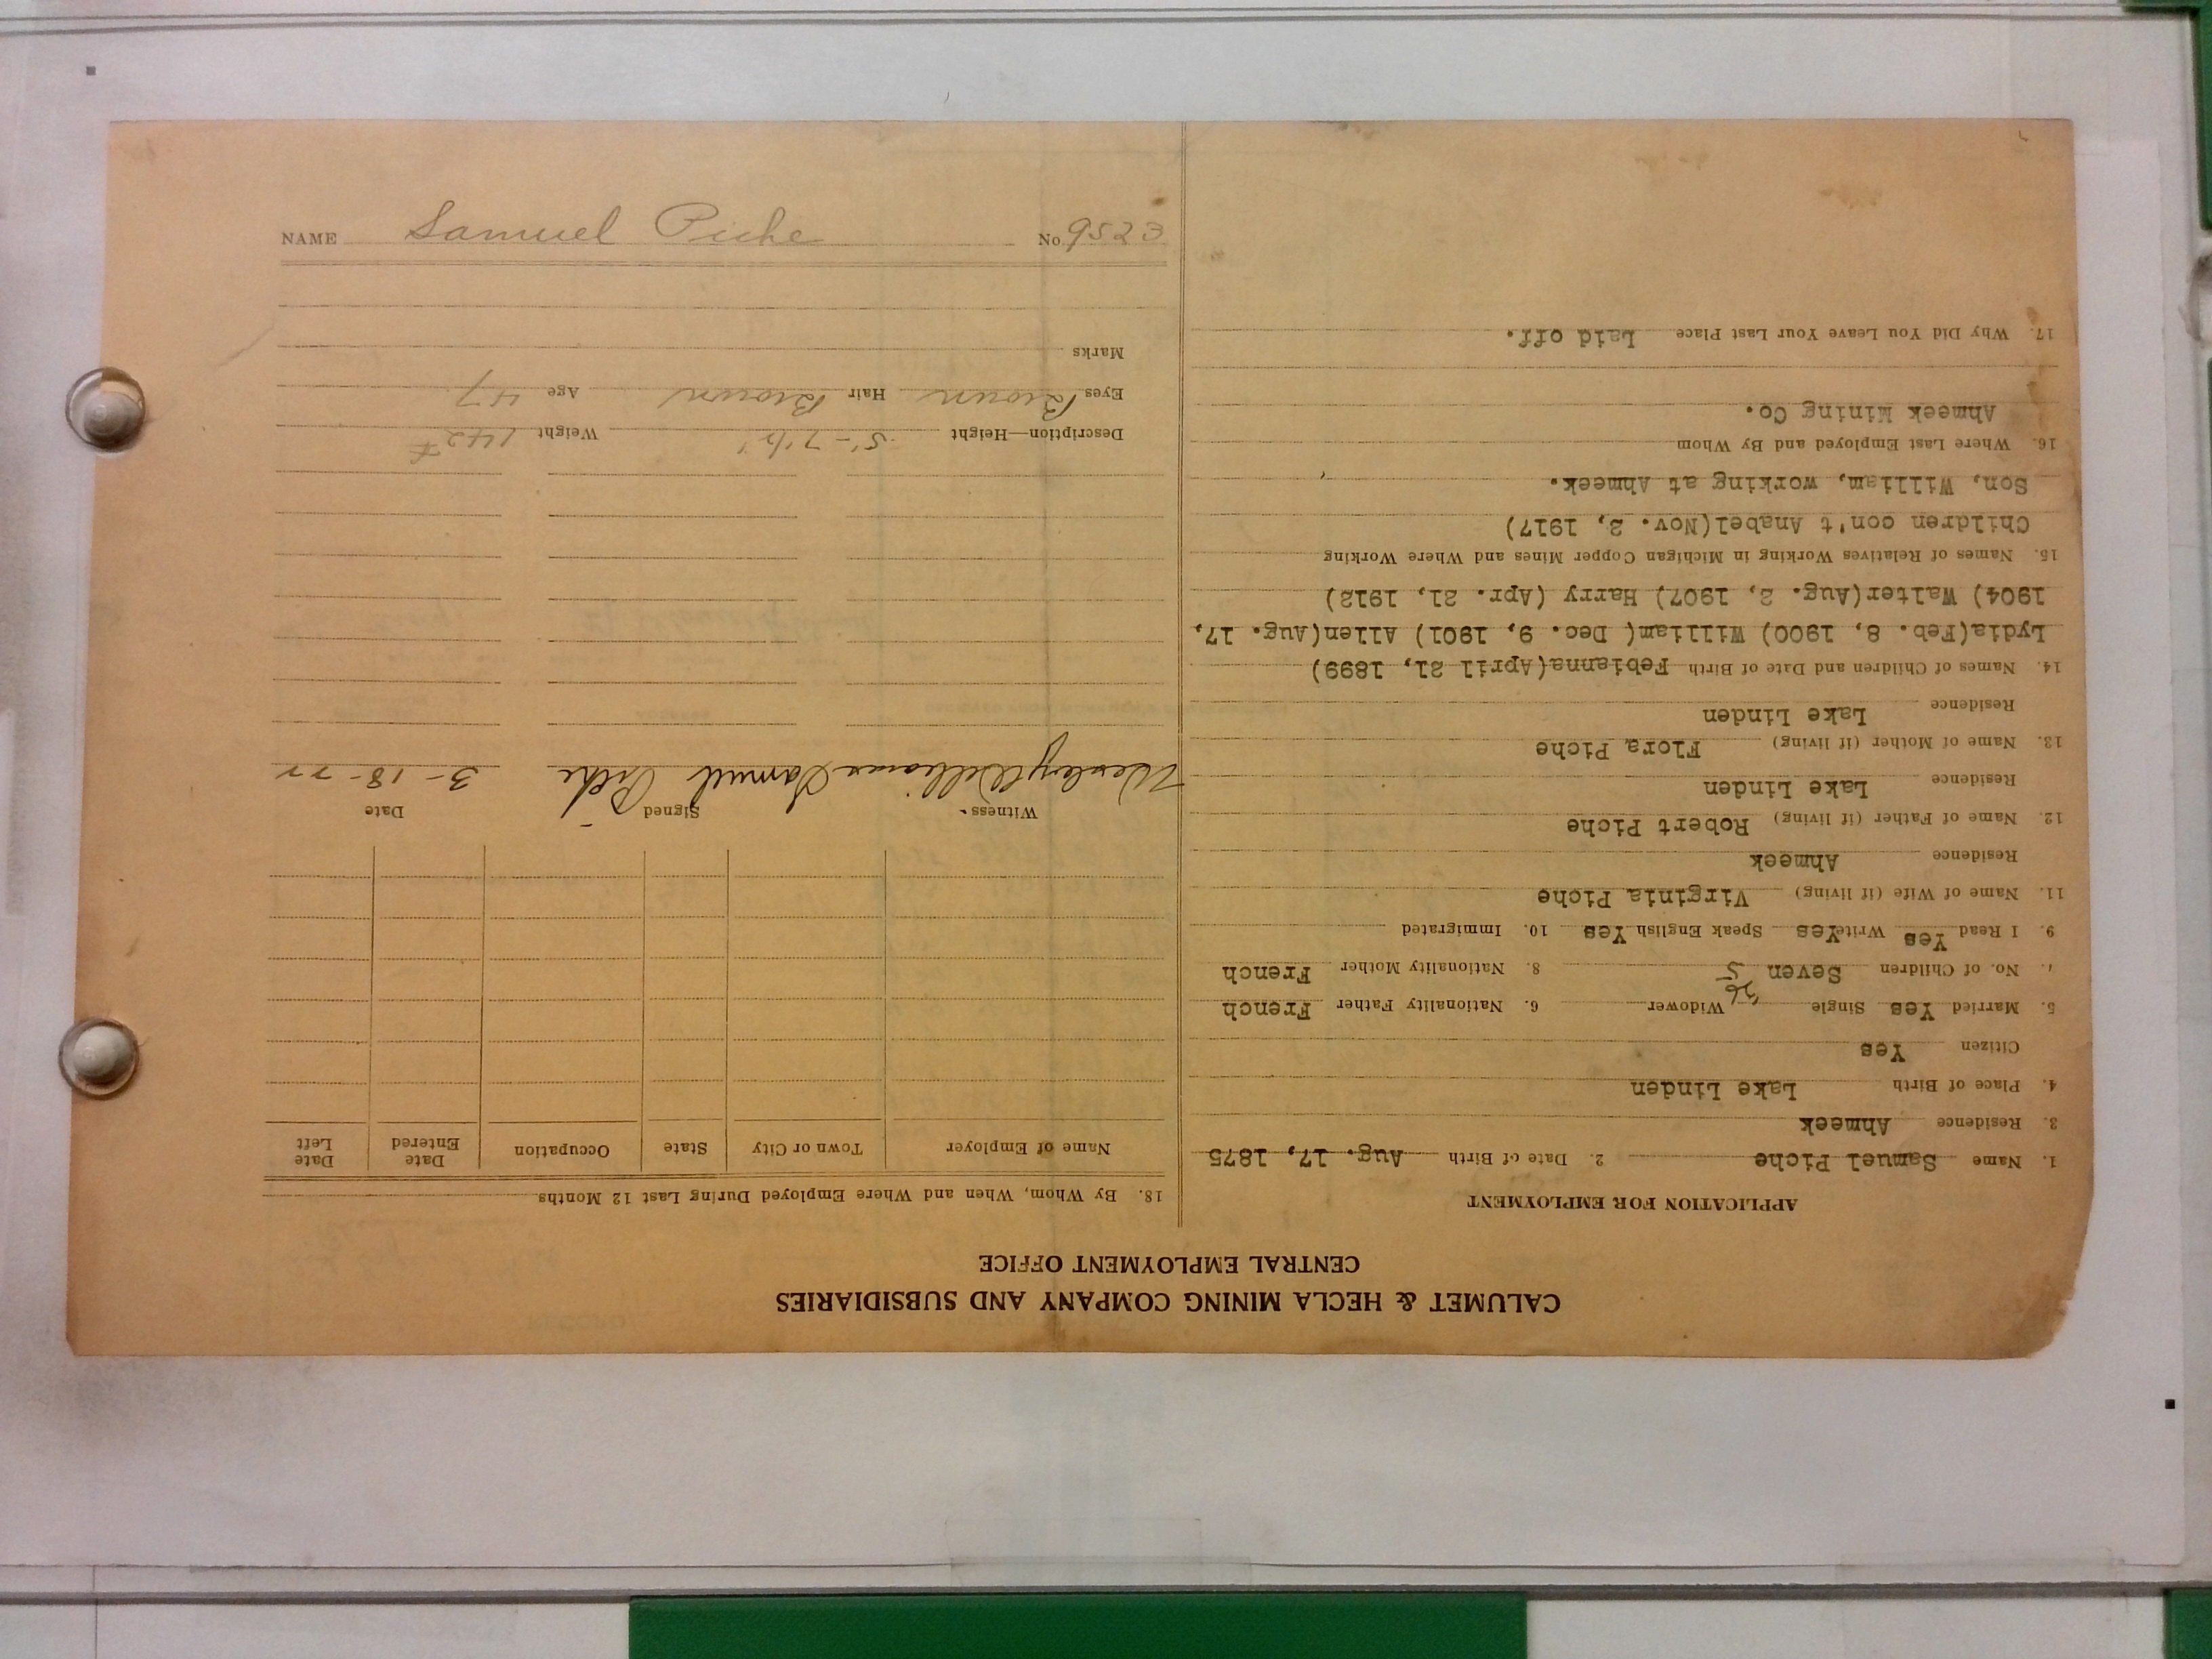 CALUMET & HECLA MINING COMPANY AND SUBSIDIARIES
CENTRAL EMPLOYMENT OFFICE
APPLICATION FOR EMPLOYMENT
1. Name Samuel Piche 2. Date of Birth Aug. 17, 1875
3. Residence Ahmeek
4. Place of Birth Lake Linden
Citizen Yes
5. Married Yes Single Widower 26 6. Nationality Father French
7. No. of Children Seven 5 8. Nationality Mother French
9. I Read Yes Write Yes Speak English Yes 10. Immigrated
11. Name of Wife (if living) Virginia Piche
Residence Ahmeek
12. Name of Father (if living) Robert Piche
Residence Lake Linden
13. Name of Mother (if living) Flora Piche
Residence Lake Linden
14. Names of Children and Date of Birth Febianna(April 21, 1899)
Lydia(Feb. 8, 1900) William( Dec. 9, 1901) Allen(Aug. 17,
1904) Walter(Aug. 2, 1907) Harry (Apr. 21, 1912)
15. Names of Relatives Working in Michigan Copper Mines and Where Working
Children con't Anabel(Nov. 2, 1917)
Son, William, working at Ahmeek.
16. Where Last Employed and By Whom
Ahmeek Mining Co.
17. Why Did You Leave Your Last Place Laid off.
18. By Whom, When and Where Employed During Last 12 Months
Name of Employer Town or City State Occupation Date Entered Date Left
Witness Signed Date
Wesley Williams Samuel Piche 3-18-22
Description—Height 5'-7½" Weight 142#
Eyes Brown Hair Brown Age 47
Marks
NAME Samuel Piche No. 9523